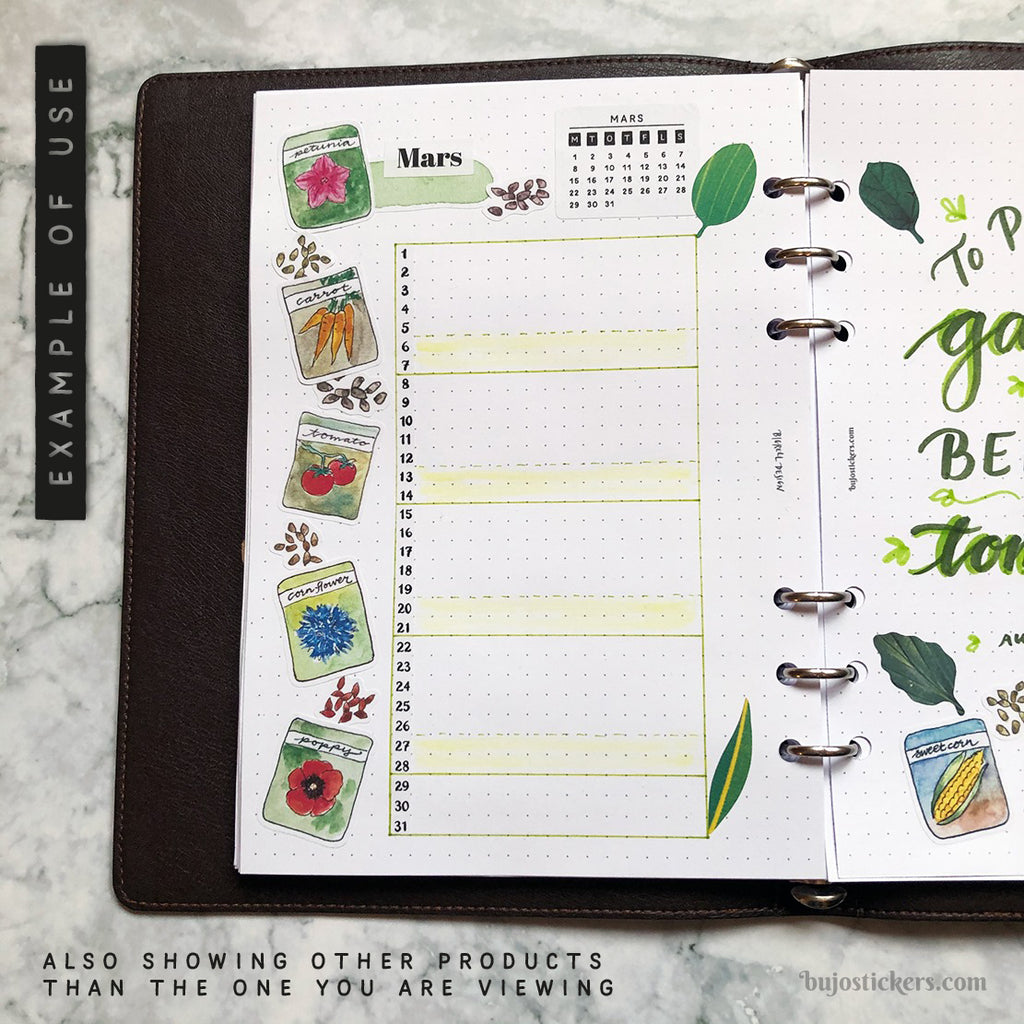 EXAMPLE OF USE
petunia
Mars
MARS
M T O T F L S
1 2 3 4 5 6 7
8 9 10 11 12 13 14
15 16 17 18 19 20 21
22 23 24 25 26 27 28
29 30 31
carrot
tomato
corn flower
poppy
1
2
3
4
5
6
7
8
9
10
11
12
13
14
15
16
17
18
19
20
21
22
23
24
25
26
27
28
29
30
31
BIGRILL DESIGN
bujostickers.com
TO P
ga
BE
tom
AU
sweet corn
ALSO SHOWING OTHER PRODUCTS
THAN THE ONE YOU ARE VIEWING
bujostickers.com